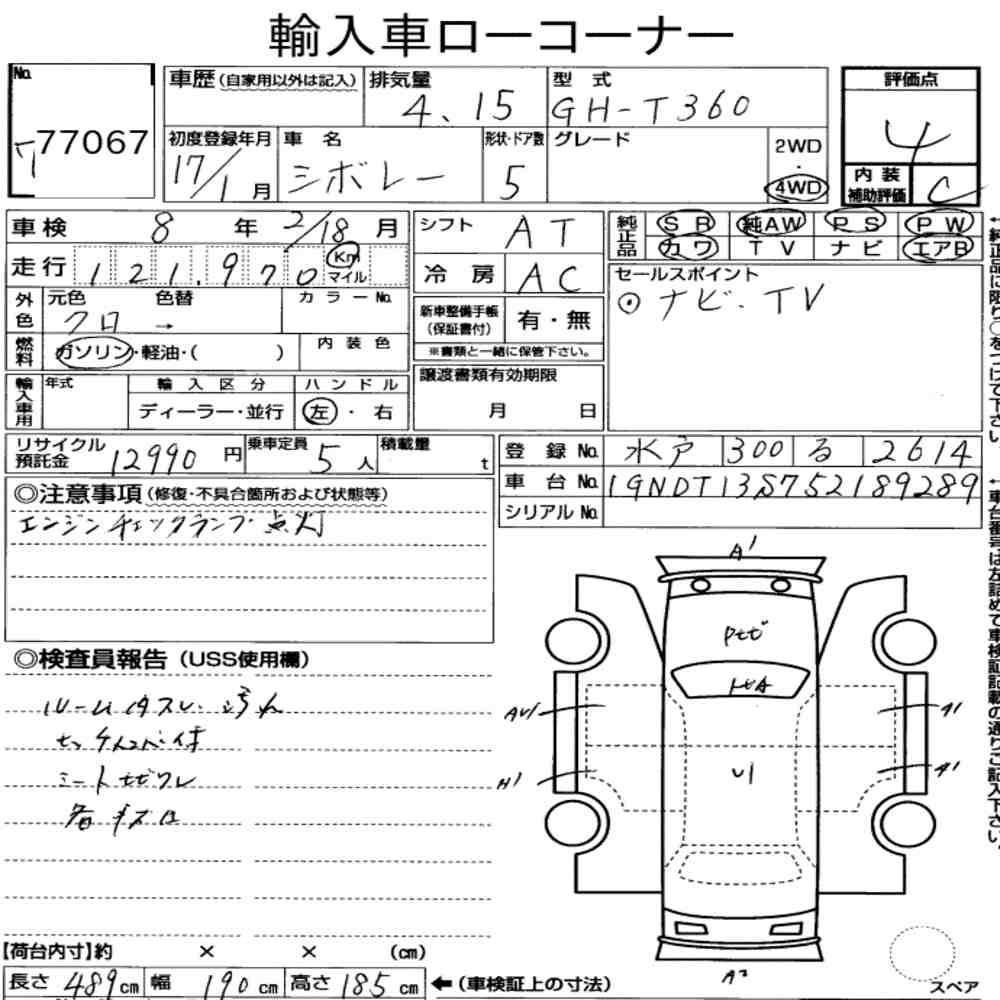 輸入車ローコーナー
No.
77067
車歴(自家用以外は記入)
排気量
4.15
型式
GH-T360
評価点
4
初度登録年月
17/1月
車名
シボレー
形状・ドア数
5
グレード
2WD
・
4WD
内装
補助評価
C
車検 8年 2/18月
走行 121,970 Km
マイル
シフト AT
冷房 AC
純正品
SR 純AW PS PW
カワ TV ナビ エアB
外色
元色 色替
クロ →
カラーNo.
新車整備手帳
(保証書付)
有・無
※書類と一緒に保管下さい。
セールスポイント
⊙ナビ・TV
燃料
ガソリン・軽油・( )
内装色
輸入車用
年式
輸入区分
ディーラー・並行
ハンドル
左・右
譲渡書類有効期限
月 日
リサイクル
預託金
12990円
乗車定員
5人
積載量
t
登録No. 水戸 300 る 2614
車台No. 1GNDT13S752189289
シリアルNo.
◎注意事項(修復・不具合箇所および状態等)
エンジンチェックランプ点灯
◎検査員報告(USS使用欄)
A1
U1
A1
A1
A2
【荷台内寸】約 × × (cm)
長さ 489cm 幅 190cm 高さ 185cm
←(車検証上の寸法)
スペア
←純正品に限り○をつけて下さい。
←車台番号は左詰めで車検証記載の通りご記入下さい。